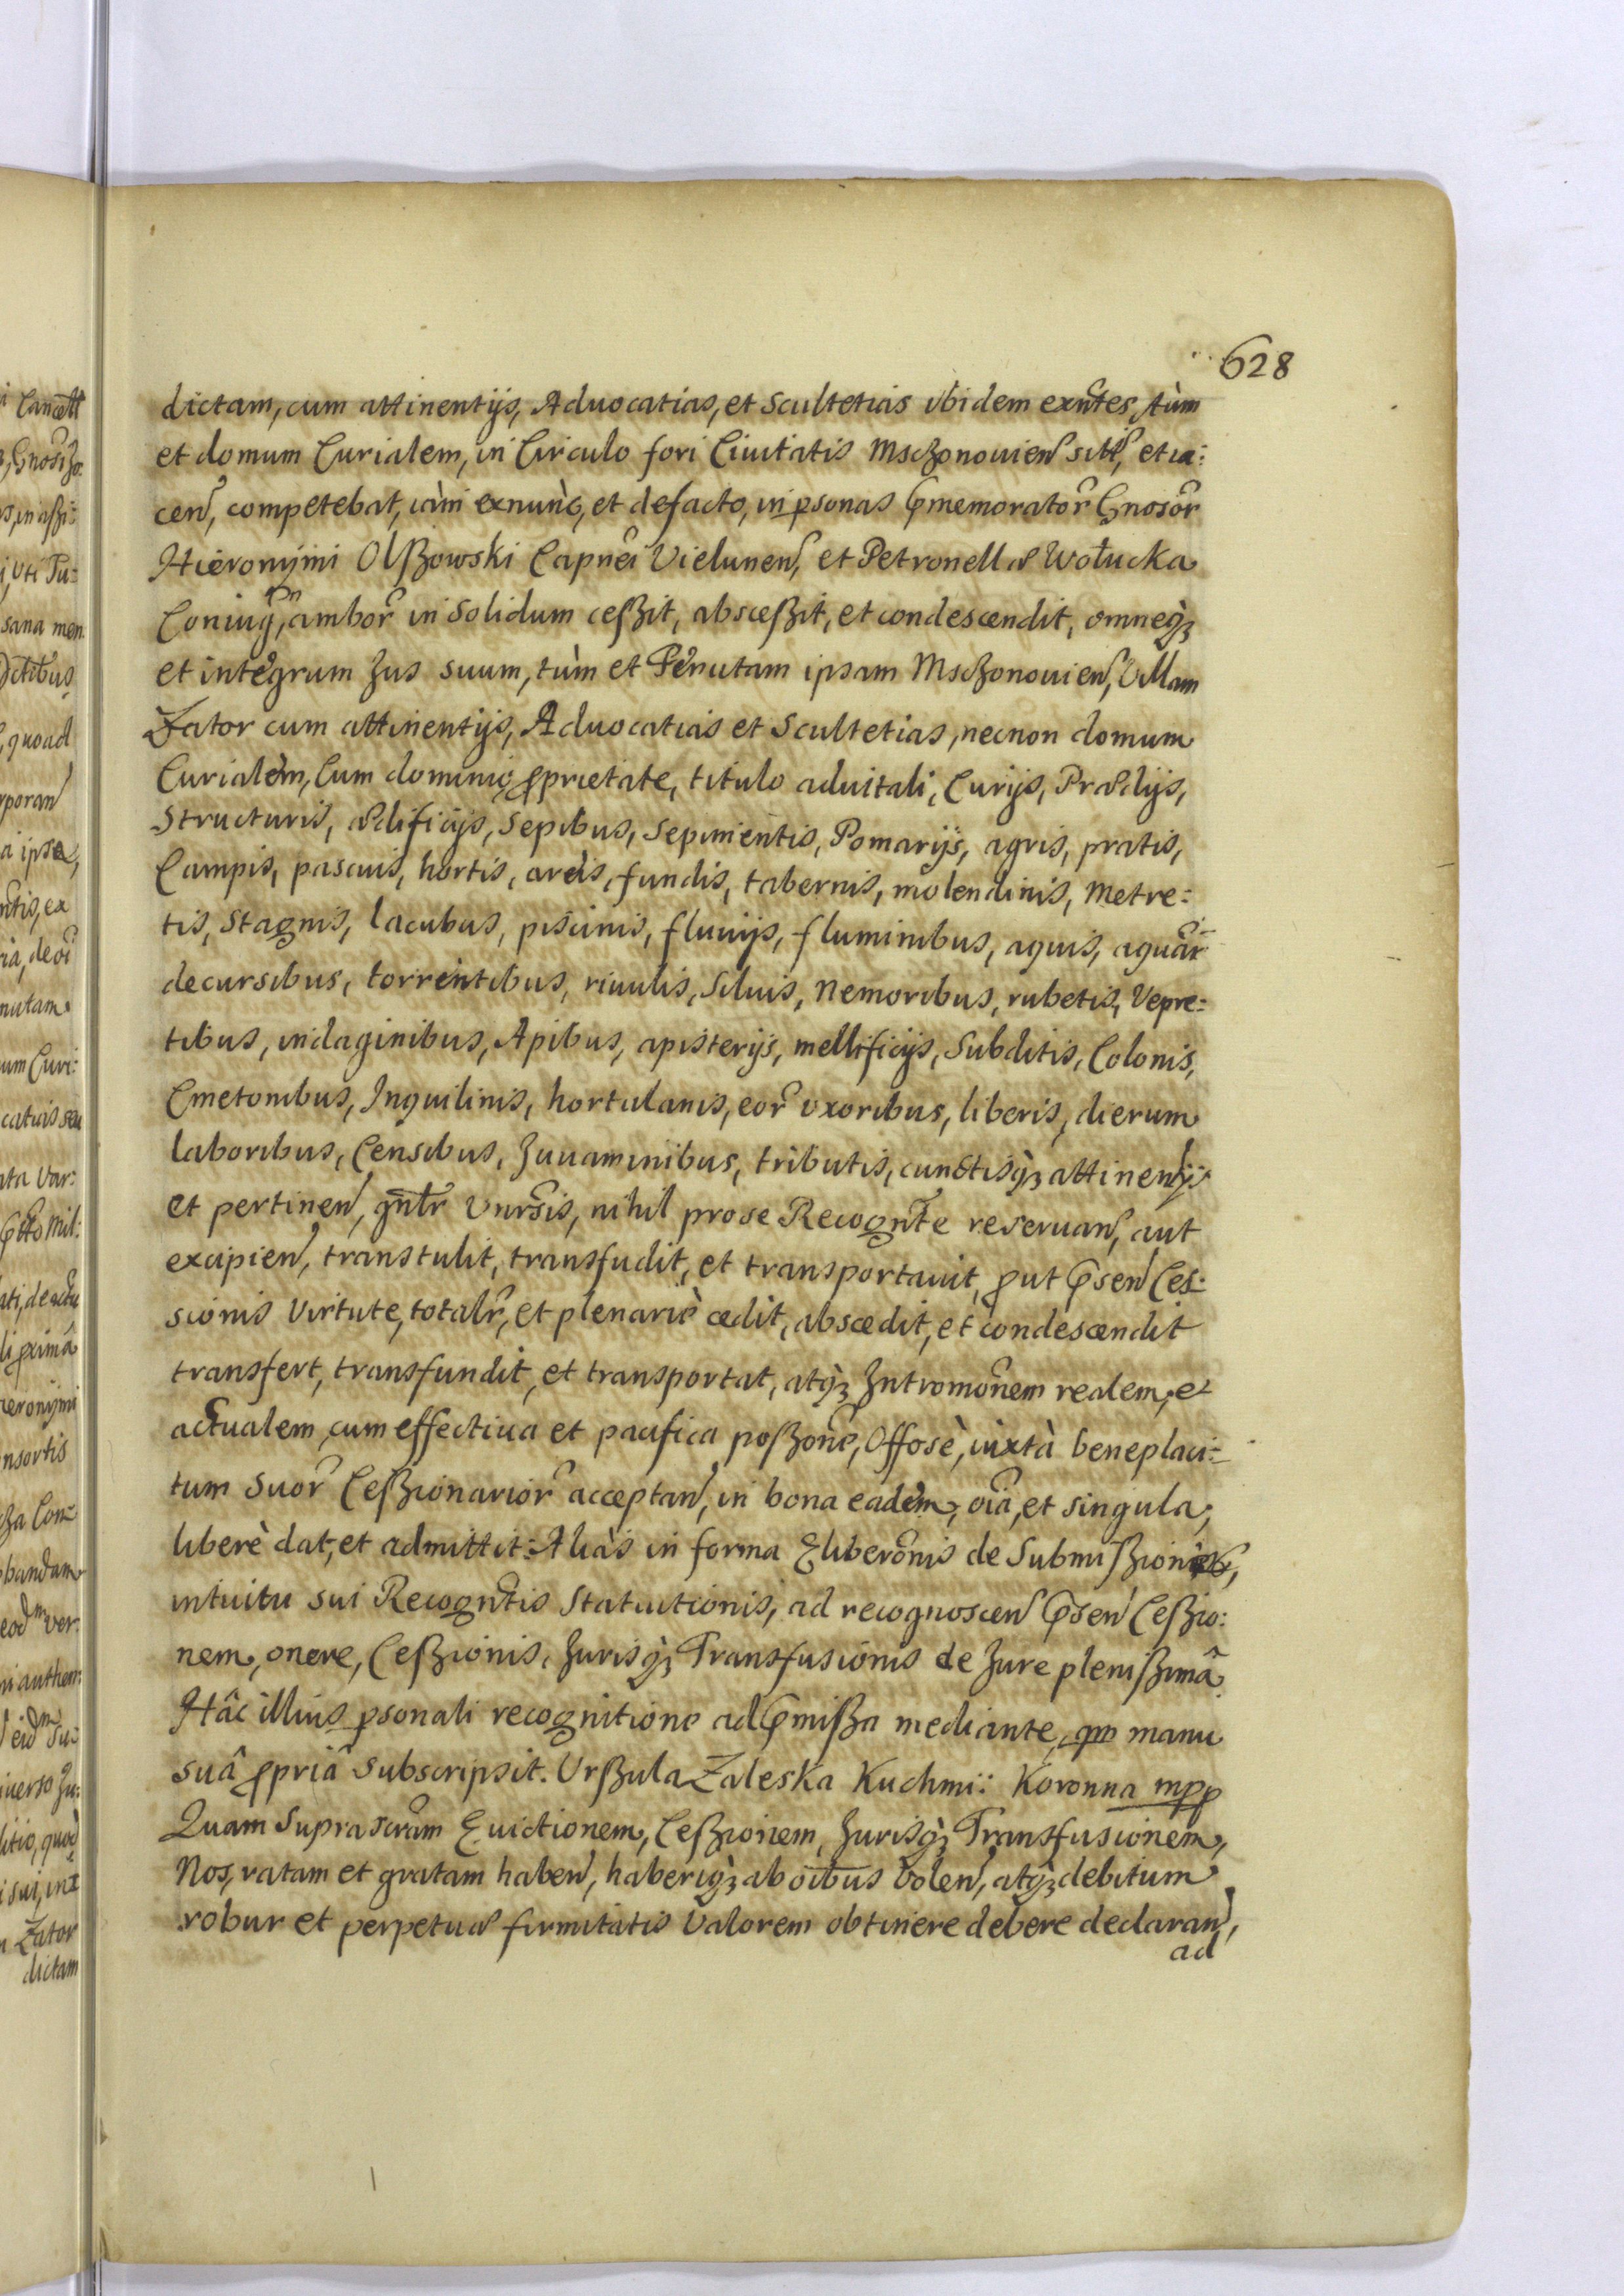 628
dictam, cum attinentijs, Aduocatias, et Scultetias ibidem exntes, tùm
et domum Curialem, in Circulo fori Ciuitatis Mschonouien sit, et ia:
cen, competebat, iàm exnunc, et defacto, in psonas pmemorator Gnosor
Hieronymi Olßowski Capnei Vielunen, et Petronellæ Wołucka
Coniug, ambor in solidum ceßit, absceßit, et condescendit, omneq3
et integrum Jus suum, tùm et Tenutam ipsam Mschonouien, Villam
Zator cum attinentijs, Aduocatias et Scultetias, necnon domum
Curialem, Cum dominio, pprietate, titulo aduitali, Curijs, Prædijs,
Structuris, ædificijs, Sepibus, Sepimentis, Pomarijs, agris, pratis,
Campis, pascuis, hortis, areis, fundis, tabernis, molendinis, Metre:
tis, Stagnis, lacubus, piscinis, fluuijs, fluminibus, aquis, aquar
decursibus, torrentibus, riuulis, Siluis, Nemoribus, rubetis, Vepre:
tibus, indaginibus, Apibus, apisterijs, mellificijs, Subditis, Colonis,
Cmetonibus, Inquilinis, hortulanis, eor uxoribus, liberis, dierum
laboribus, Censibus, Juuaminibus, tributis, cunctisq3 attinentijs
et pertinen, gnlr Vnrsis, nihil prose Recognte reseruan, aut
excipien, transtulit, transfudit, et transportauit, put psen Ces:
sionis Virtute, totalr, et plenariè cedit, abscedit, et condescendit
transfert, transfundit, et transportat, atq3 Intromonem realem, et
actualem, cum effectiua et pacifica poßone, Offosè, iuxtà beneplaci:
tum Suor Ceßionarior acceptan, in bona eadem, oia, et singula,
liberè dat, et admittit: Aliàs in forma Eliberonis de Submißionis,
intuitu sui Recogntis Statuitionis, ad recognoscen psen Ceßio:
nem, onere, Ceßionis, Jurisq3 Transfusionis de Jure plenißimâ.
Hâc illius psonali recognitione ad pmißa mediante, qm manu
suâ ppriâ subscripsit. Urßula Zaleska Kuchmi: Koronna mpp
Quam Suprascram Euictionem, Ceßionem, Jurisq3 Transfusionem,
Nos, ratam et gratam haben, haberiq3 ab oibus Volen, atq3 debitum
robur et perpetuæ firmitatis Valorem obtinere debere declaran,
ad